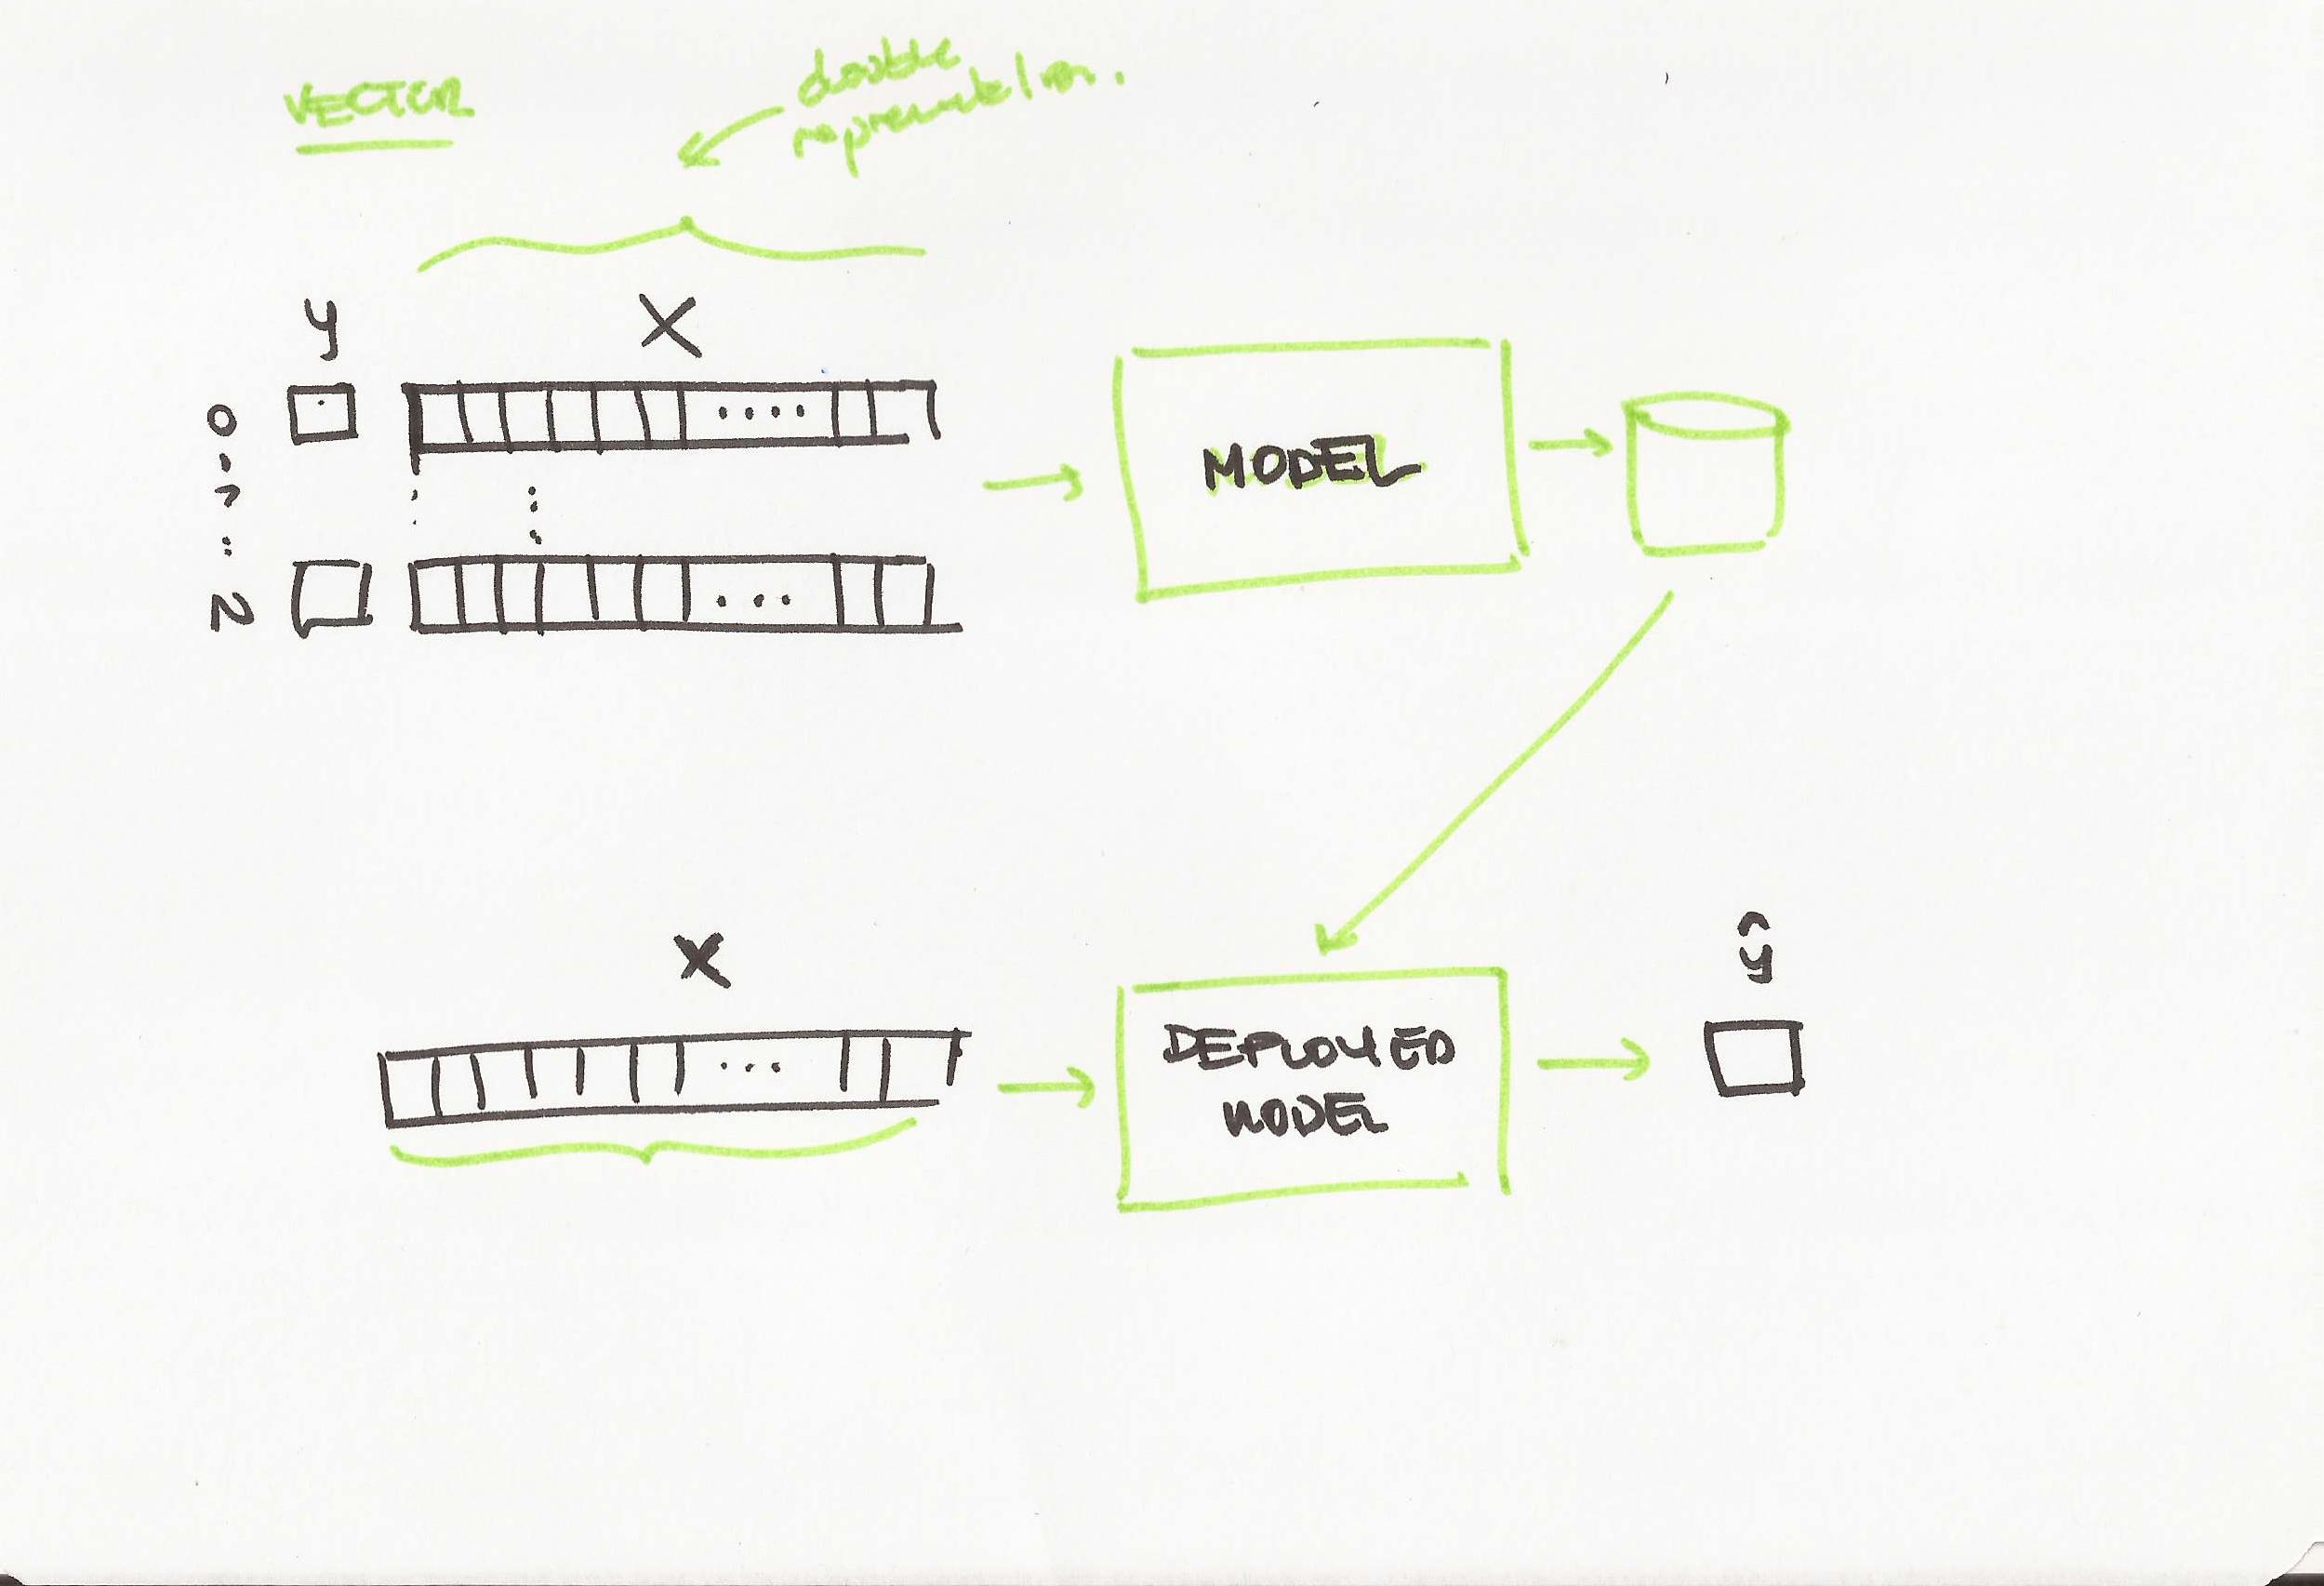 VECTOR
double
representation.
y
X
0
MODEL
2
x
ŷ
DEPLOYED
MODEL